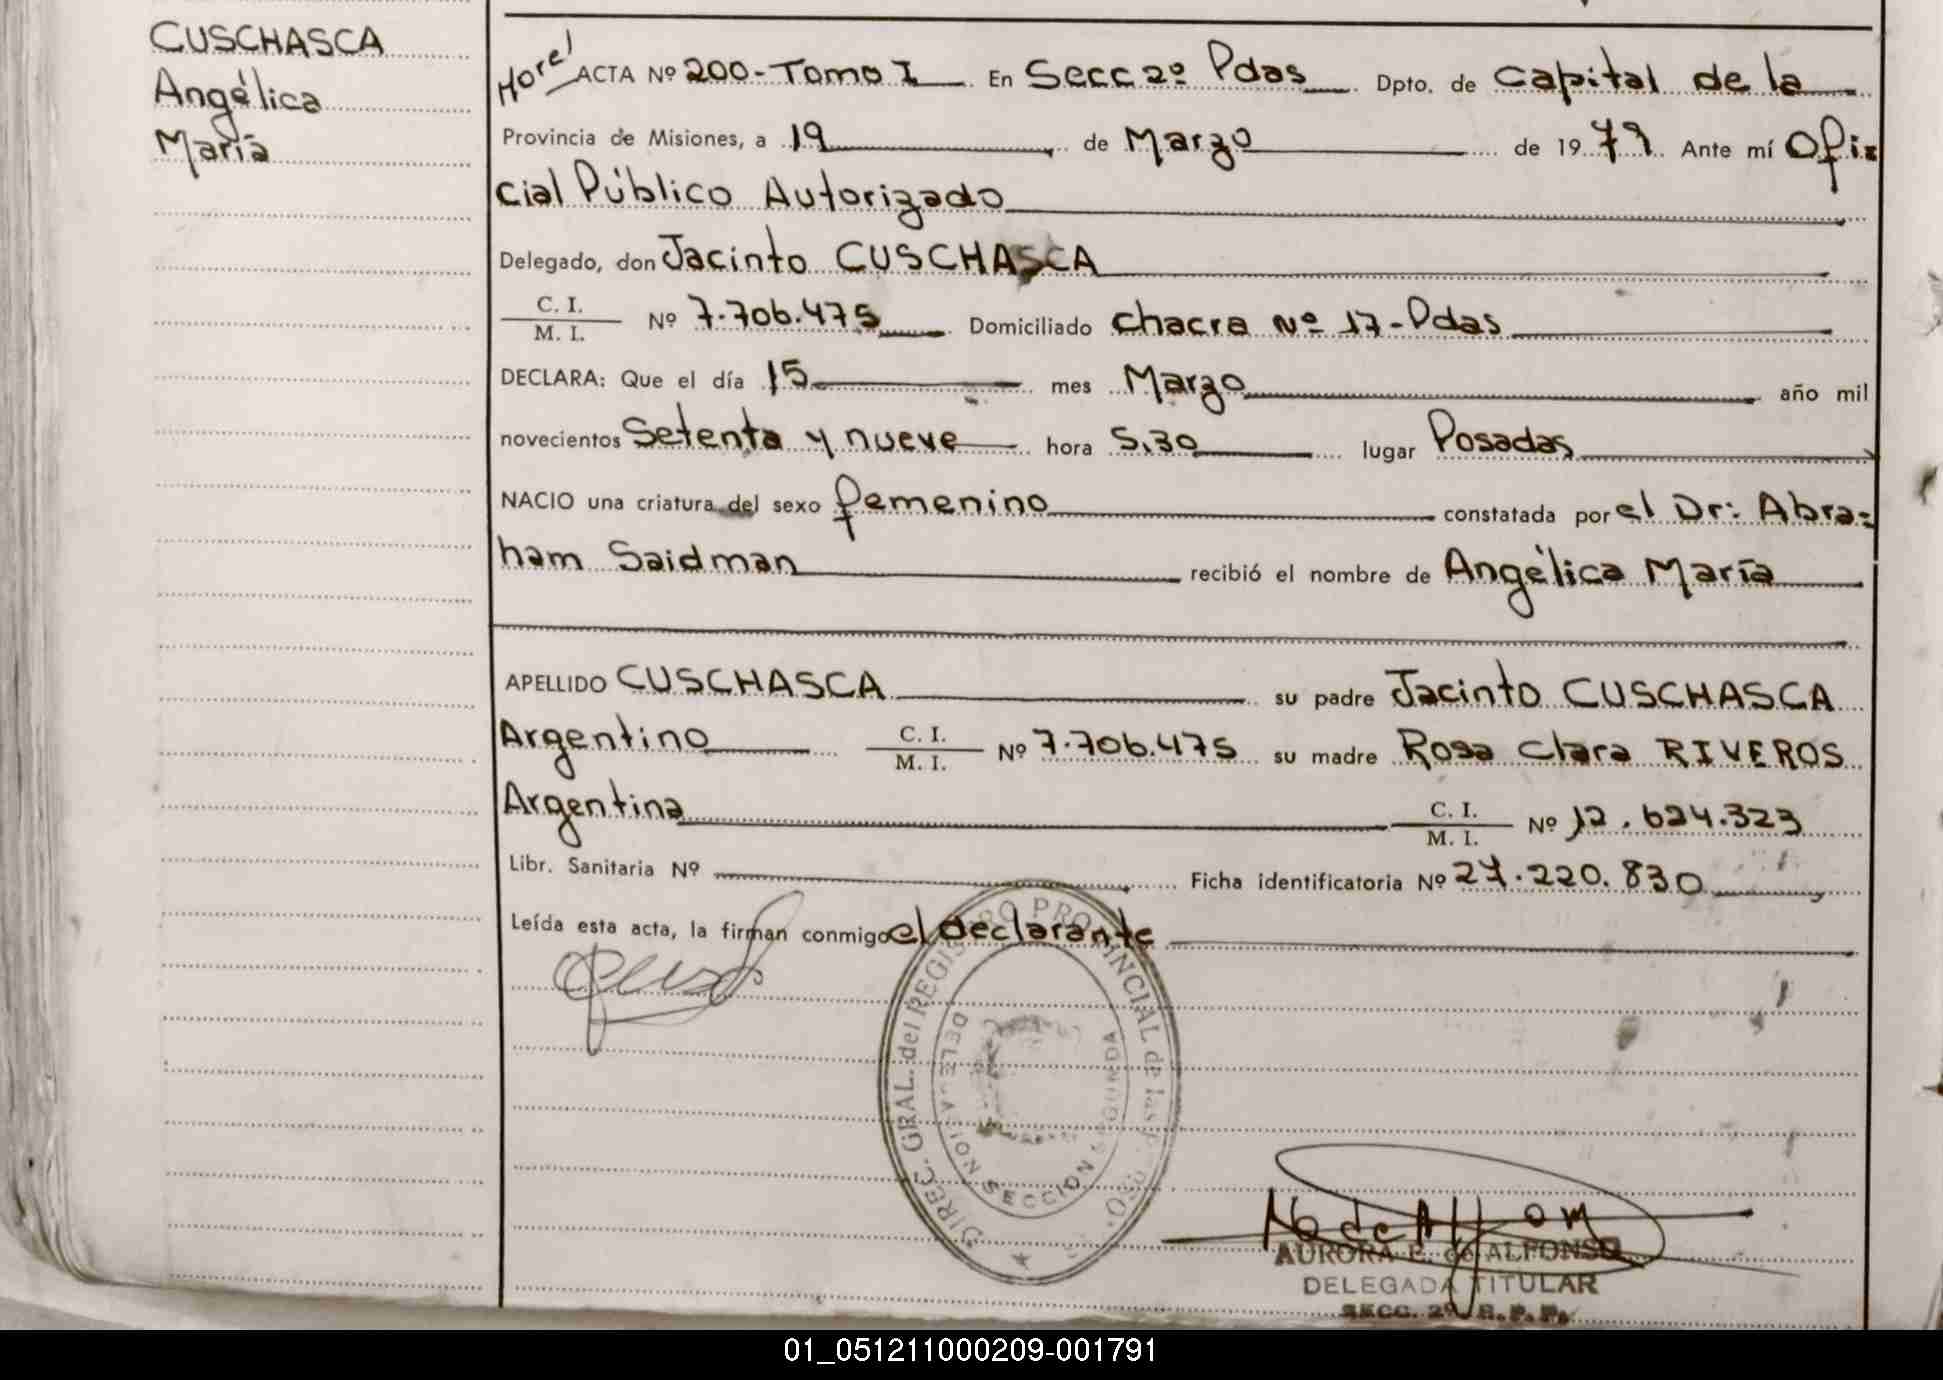 CUSCHASCA
Angélica
María
ACTA Nº 200-Tomo I En Secc 2º Pdas Dpto. de Capital de la
Provincia de Misiones, a 19 de Marzo de 1979 Ante mí Ofi=
cial Público Autorizado
Delegado, don Jacinto CUSCHASCA
C. I.
M. I. Nº 7.706.475 Domiciliado Chacra Nº 17-Pdas
DECLARA: Que el día 15 mes Marzo año mil
novecientos Setenta y nueve hora 5,30 lugar Posadas
NACIO una criatura del sexo femenino constatada por el Dr: Abra=
ham Saidman recibió el nombre de Angélica María
APELLIDO CUSCHASCA su padre Jacinto CUSCHASCA
Argentino C. I.
M. I. Nº 7.706.475 su madre Rosa Clara RIVEROS
Argentina C. I.
M. I. Nº 12.624.323
Libr. Sanitaria Nº Ficha identificatoria Nº 27.220.830
Leída esta acta, la firman conmigo el declarante
DIREC. GRAL. del REGISTRO PROVINCIAL de las
DELEGACION SECCION SEGUNDA
AURORA E. de ALFONSO
DELEGADA TITULAR
SECC. 2º R. P. P.
01_051211000209-001791